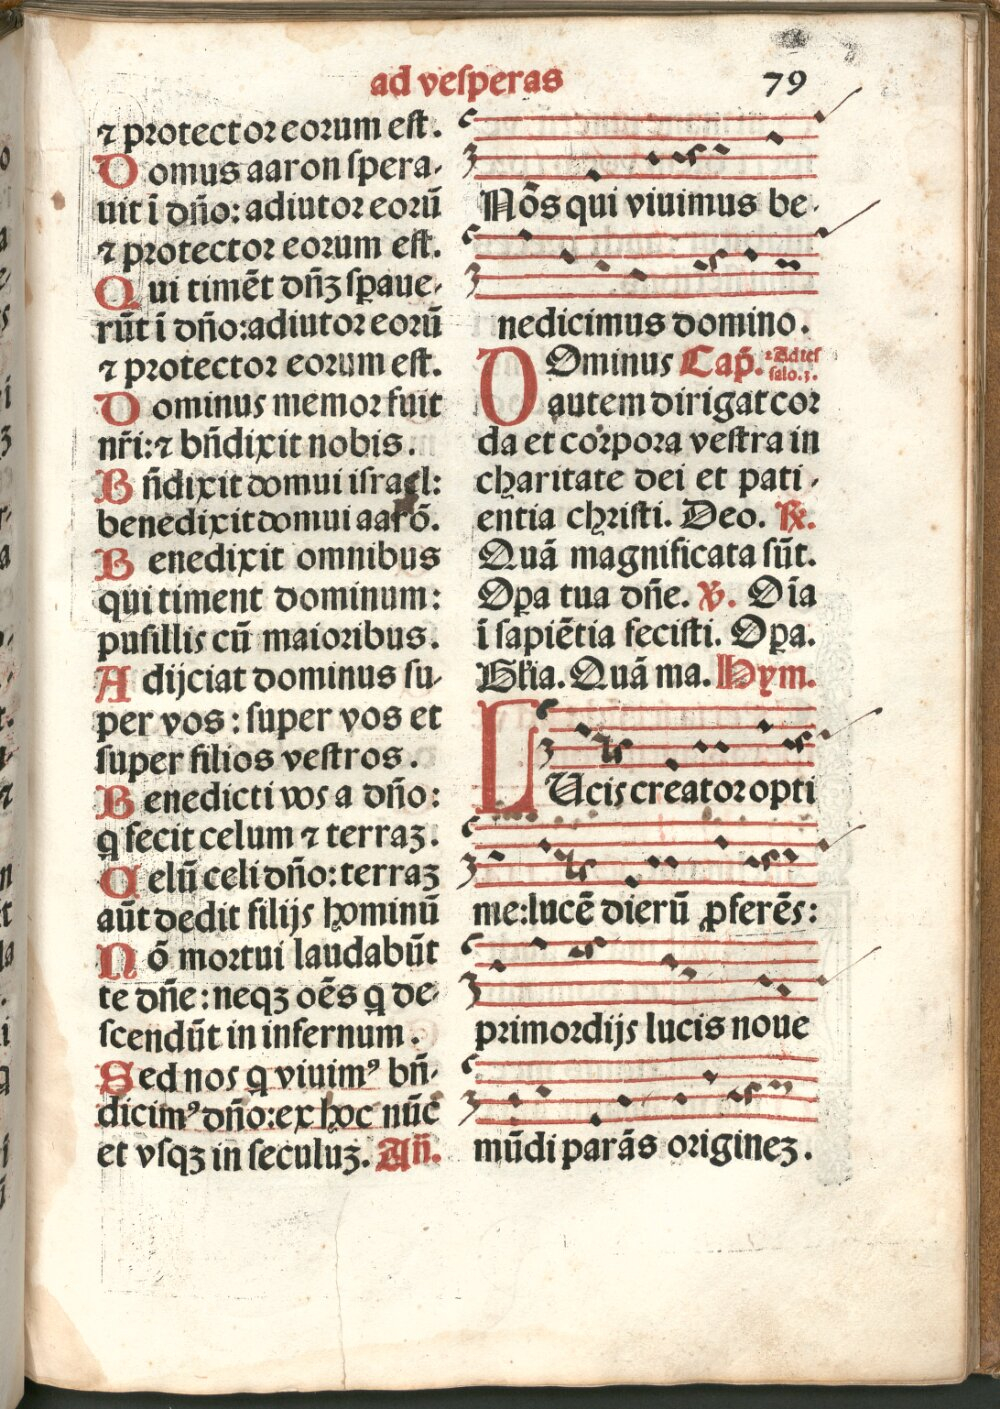 ad vesperas
79
⁊ protector eorum est.
Domus aaron spera-
uit ĩ dño: adiutor eorũ
⁊ protector eorum est.
Qui timẽt dñꝫ sꝑaue-
rũt ĩ dño: adiutor eorũ
⁊ protector eorum est.
Dominus memor fuit
nr̃i: ⁊ bñdixit nobis.
Bñdixit domui israel:
benedixit domui aarõ.
Benedixit omnibus
qui timent dominum:
pusillis cũ maioribus.
Adijciat dominus su-
per vos: super vos et
super filios vestros.
Benedicti vos a dño:
q fecit celum ⁊ terraꝫ.
Celũ celi dño: terraꝫ
aũt dedit filijs hominũ
Nõ mortui laudabũt
te dñe: neqꝫ oẽs q de-
scendũt in infernum.
Sed nos q viuimꝰ bñ-
dicimꝰ dño: ex hoc nũc
et vsqꝫ in seculuꝫ. Añ.
Nõs qui viuimus be-
nedicimus domino.
DOminus Cap̃. 2 Ad tes
salo. 3.
autem dirigat cor
da et corpora vestra in
charitate dei et pati-
entia christi. Deo. ℟.
Quã magnificata sũt.
Oꝑa tua dñe. ℣. Oĩa
ĩ sapiẽtia fecisti. Oꝑa.
Gl̃ia. Quã ma. Hym.
LUcis creator opti
me: lucẽ dierũ ꝓferẽs:
primordijs lucis noue
mũdi parãs origineꝫ.